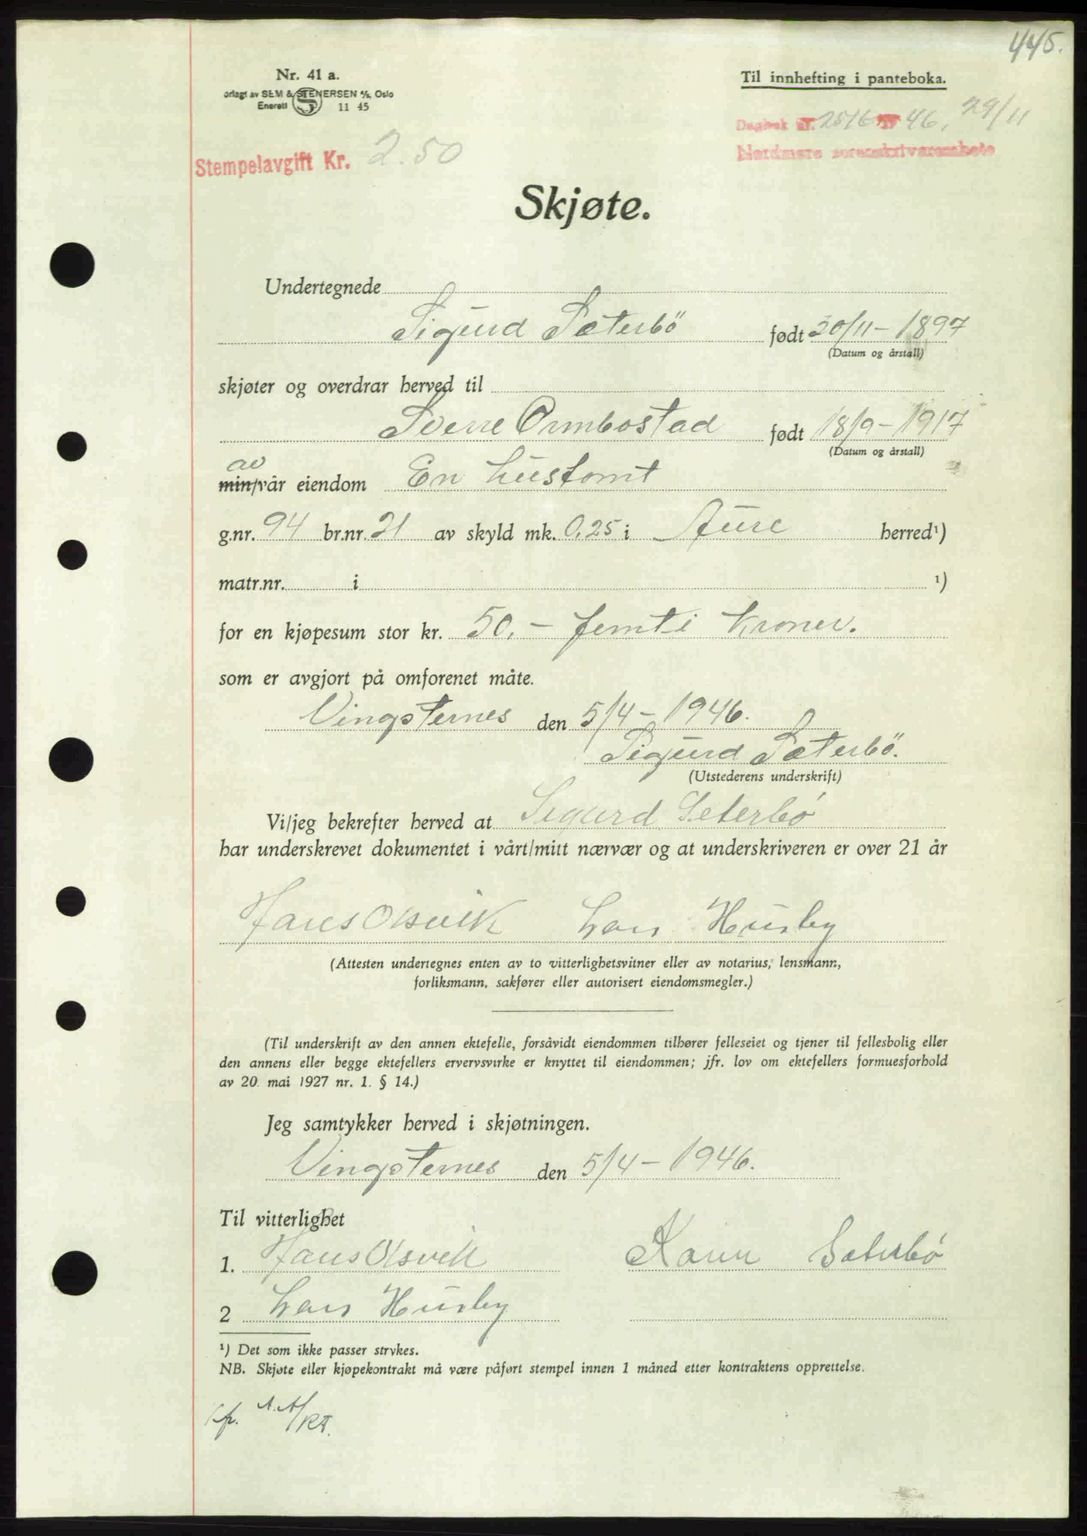 445.
Nr. 41 a.
orlagt av SEM & STENERSEN A/S, Oslo
Enerett S 11 45
Til innhefting i panteboka.
Dagbok nr. 2516 46, 29/11
Nordmøre sorenskriverembete
Stempelavgift Kr. 2.50
Skjøte.
Undertegnede
Sigurd Sæterbö født 30/11-1897
(Datum og årstall)
skjøter og overdrar herved til
Sverre Ormbostad født 18/9-1917
(Datum og årstall)
av
min/vår eiendom En hustomt
g.nr. 94 br.nr. 21 av skyld mk. 0,25 i Aure herred¹)
matr.nr. i ¹)
for en kjøpesum stor kr. 50,- femti kroner.
som er avgjort på omforenet måte.
Vingsternes den 5/4-1946.
Sigurd Sæterbö.
(Utstederens underskrift)
Vi/jeg bekrefter herved at Sigurd Seterbø
har underskrevet dokumentet i vårt/mitt nærvær og at underskriveren er over 21 år
Hans Olsvik Lars Husby
(Attesten undertegnes enten av to vitterlighetsvitner eller av notarius, lensmann,
forliksmann, sakfører eller autorisert eiendomsmegler.)
(Til underskrift av den annen ektefelle, forsåvidt eiendommen tilhører felleseiet og tjener til fellesbolig eller
den annens eller begge ektefellers ervervsvirke er knyttet til eiendommen; jfr. lov om ektefellers formuesforhold
av 20. mai 1927 nr. 1. § 14.)
Jeg samtykker herved i skjøtningen.
Vingsternes den 5/4-1946.
Til vitterlighet
1. Hans Olsvik Karen Sæterbø
2 Lars Husby
¹) Det som ikke passer strykes.
NB. Skjøte eller kjøpekontrakt må være påført stempel innen 1 måned etter kontraktens opprettelse.